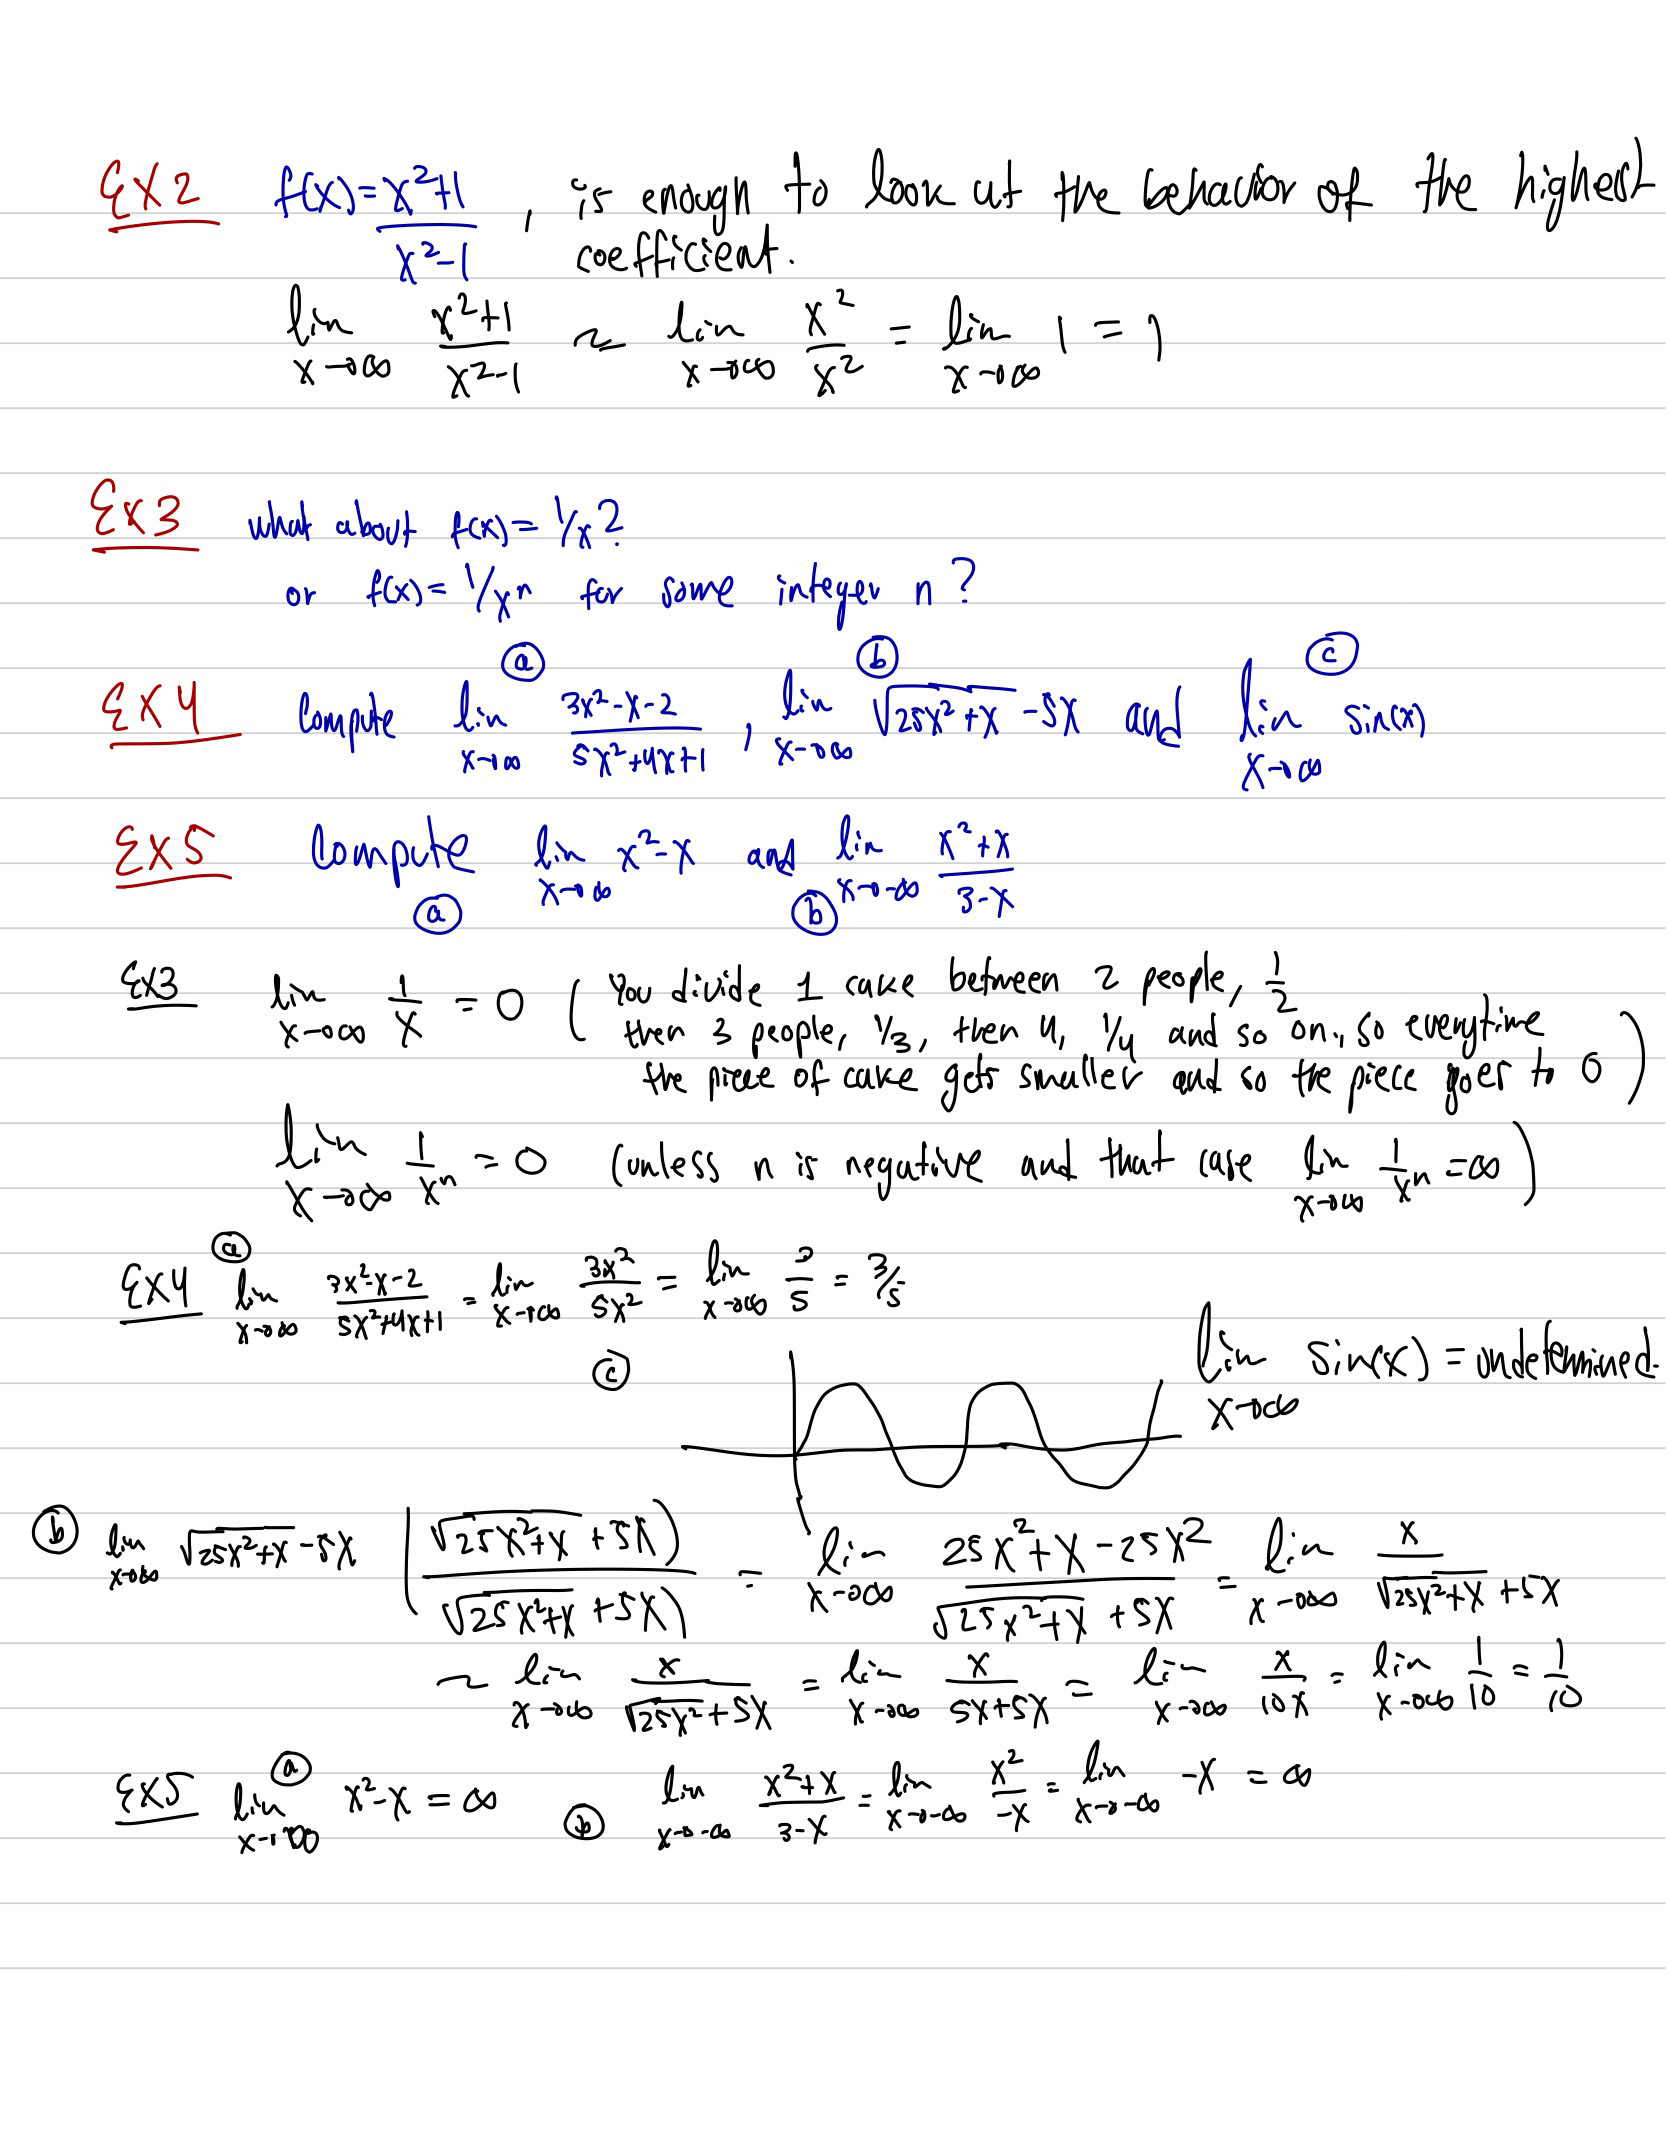 Ex2 f(x) = (x²+1)/(x²-1), is enough to look at the behavior of the highest
coefficient.
lim x→∞ (x²+1)/(x²-1) ~ lim x→∞ x²/x² = lim x→∞ 1 = 1
Ex3 what about f(x) = 1/x?
or f(x) = 1/xⁿ for some integer n?
Ex4 Compute ⓐ lim x→∞ (3x²-x-2)/(5x²+4x+1), ⓑ lim x→∞ √(25x²+x) - 5x and ⓒ lim x→∞ sin(x)
Ex5 Compute ⓐ lim x→∞ x²-x and ⓑ lim x→-∞ (x²+x)/(3-x)
Ex3 lim x→∞ 1/x = 0 (You divide 1 cake between 2 people, 1/2
then 3 people, 1/3, then 4, 1/4 and so on., so everytime
the piece of cake gets smaller and so the piece goes to 0)
lim x→∞ 1/xⁿ = 0 (unless n is negative and that case lim x→∞ 1/xⁿ = ∞)
Ex4 ⓐ lim x→∞ (3x²-x-2)/(5x²+4x+1) = lim x→∞ 3x²/5x² = lim x→∞ 3/5 = 3/5
ⓒ lim x→∞ sin(x) = undetermined.
ⓑ lim x→∞ √(25x²+x) - 5x ((√(25x²+x) + 5x)/(√(25x²+x) + 5x)) = lim x→∞ (25x²+x-25x²)/(√(25x²+x) + 5x) = lim x→∞ x/(√(25x²+x) + 5x)
~ lim x→∞ x/(√(25x²) + 5x) = lim x→∞ x/(5x+5x) = lim x→∞ x/10x = lim x→∞ 1/10 = 1/10
Ex5 ⓐ lim x→∞ x²-x = ∞ ⓑ lim x→-∞ (x²+x)/(3-x) = lim x→-∞ x²/-x = lim x→-∞ -x = ∞